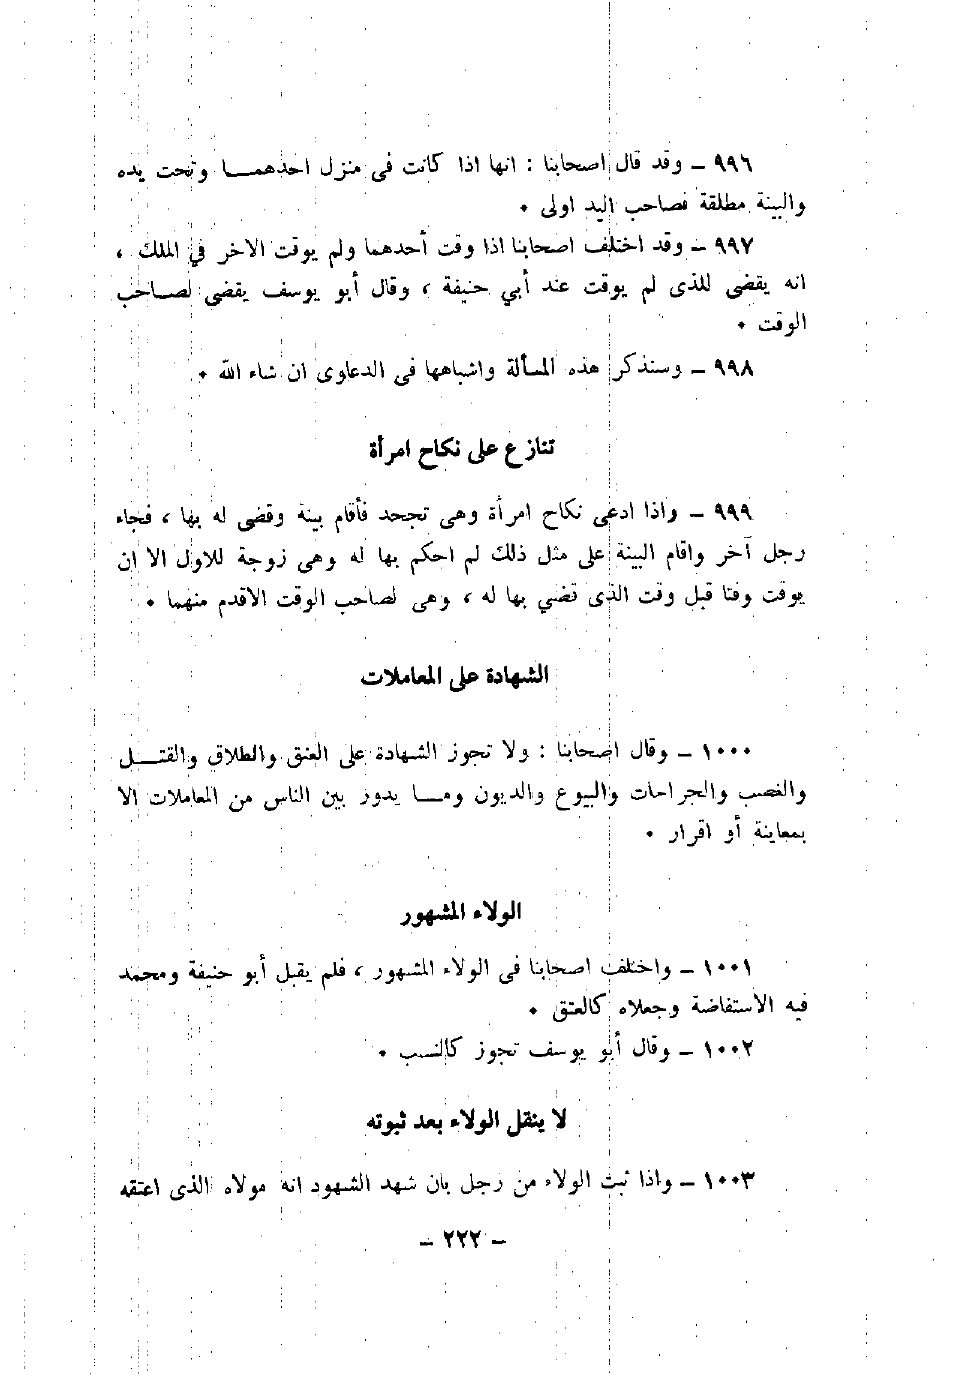 ٩٩٦ ـ وقد قال اصحابنا : انها اذا كانت فى منزل احدهمـــا وتحت يده
والبينة مطلقة فصاحب اليد اولى ٠
٩٩٧ ـ وقد اختلف اصحابنا اذا وقت أحدهما ولم يوقت الاخر في الملك ،
انه يقضى للذى لم يوقت عند أبي حنيفة ، وقال أبو يوسف يقضى لصـاحب
الوقت ٠
٩٩٨ ـ وسنذكر هذه المسألة واشباهها فى الدعاوى ان شاء الله ٠
تنازع على نكاح امرأة
٩٩٩ ـ واذا ادعى نكاح امرأة وهى تجحد فأقام بينة وقضى له بها ، فجاء
رجل آخر واقام البينة على مثل ذلك لم احكم بها له وهى زوجة للاول الا ان
يوقت وقتا قبل وقت الذى قضي بها له ، وهى لصاحب الوقت الاقدم منهما ٠
الشهادة على المعاملات
١٠٠٠ ـ وقال اصحابنا : ولا تجوز الشهادة على العتق والطلاق والقتـــل
والغصب والجراحات والبيوع والديون ومـــا يدور بين الناس من المعاملات الا
بمعاينة أو اقرار ٠
الولاء المشهور
١٠٠١ ـ واختلف اصحابنا فى الولاء المشهور ، فلم يقبل أبو حنيفة ومحمد
فيه الاستفاضة وجعلاه كالعتق ٠
١٠٠٢ ـ وقال أبو يوسف تجوز كالنسب ٠
لا ينقل الولاء بعد ثبوته
١٠٠٣ ـ واذا ثبت الولاء من رجل بان شهد الشهود انه مولاه الذى اعتقه
ـ ٢٢٢ ـ